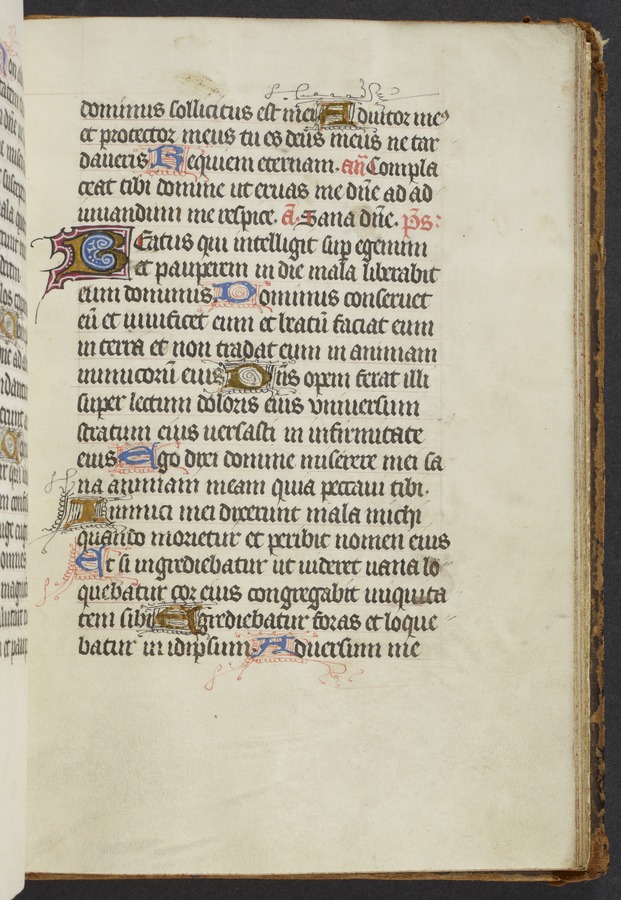 dominus sollicitus est mei Adiutor me⁹
et protector meus tu es deus meus ne tar
daueris Requiem eternam. an̄ Compla
ceat tibi domine ut eruas me dn̄e ad ad
iuuandum me respice. ā. Sana dn̄e. p̄s:
BEatus qui intelligit sup egenum
et pauperem in die mala liberabit
eum dominus. Dominus conseruet
eū et uiuificet eum et beatū faciat eum
in terra et non tradat eum in animam
inimicorū eius Dn̄s opem ferat illi
super lectum doloris eius vniuersum
stratum eius uersasti in infirmitate
eius Ego dixi domine miserere mei sa
na animam meam quia peccaui tibi.
Inimici mei dixerunt mala michi
quando morietur et peribit nomen eius
Et si ingrediebatur ut uideret uana lo
quebatur cor eius congregabit iniquita
tem sibi Egrediebatur foras et loque
batur in idipsum Aduersum me